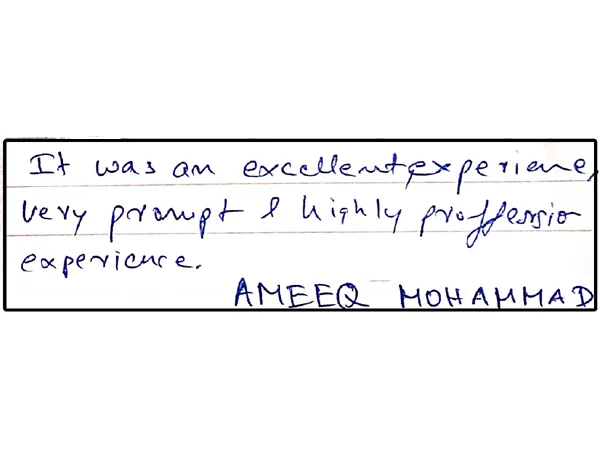 It was an excellent experience,
very prompt & highly proffessio
experience.
AMEEQ MOHAMMAD